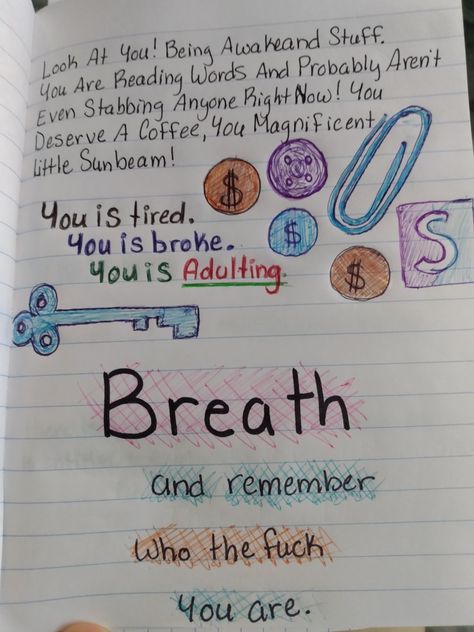 Look At You! Being Awakeand Stuff.
You Are Reading Words And Probably Aren't
Even Stabbing Anyone Right Now! You
Deserve A Coffee, You Magnificent
Little Sunbeam!
You is tired.
You is broke.
You is Adulting.
$
$
$
S
Breath
and remember
who the fuck
you are.